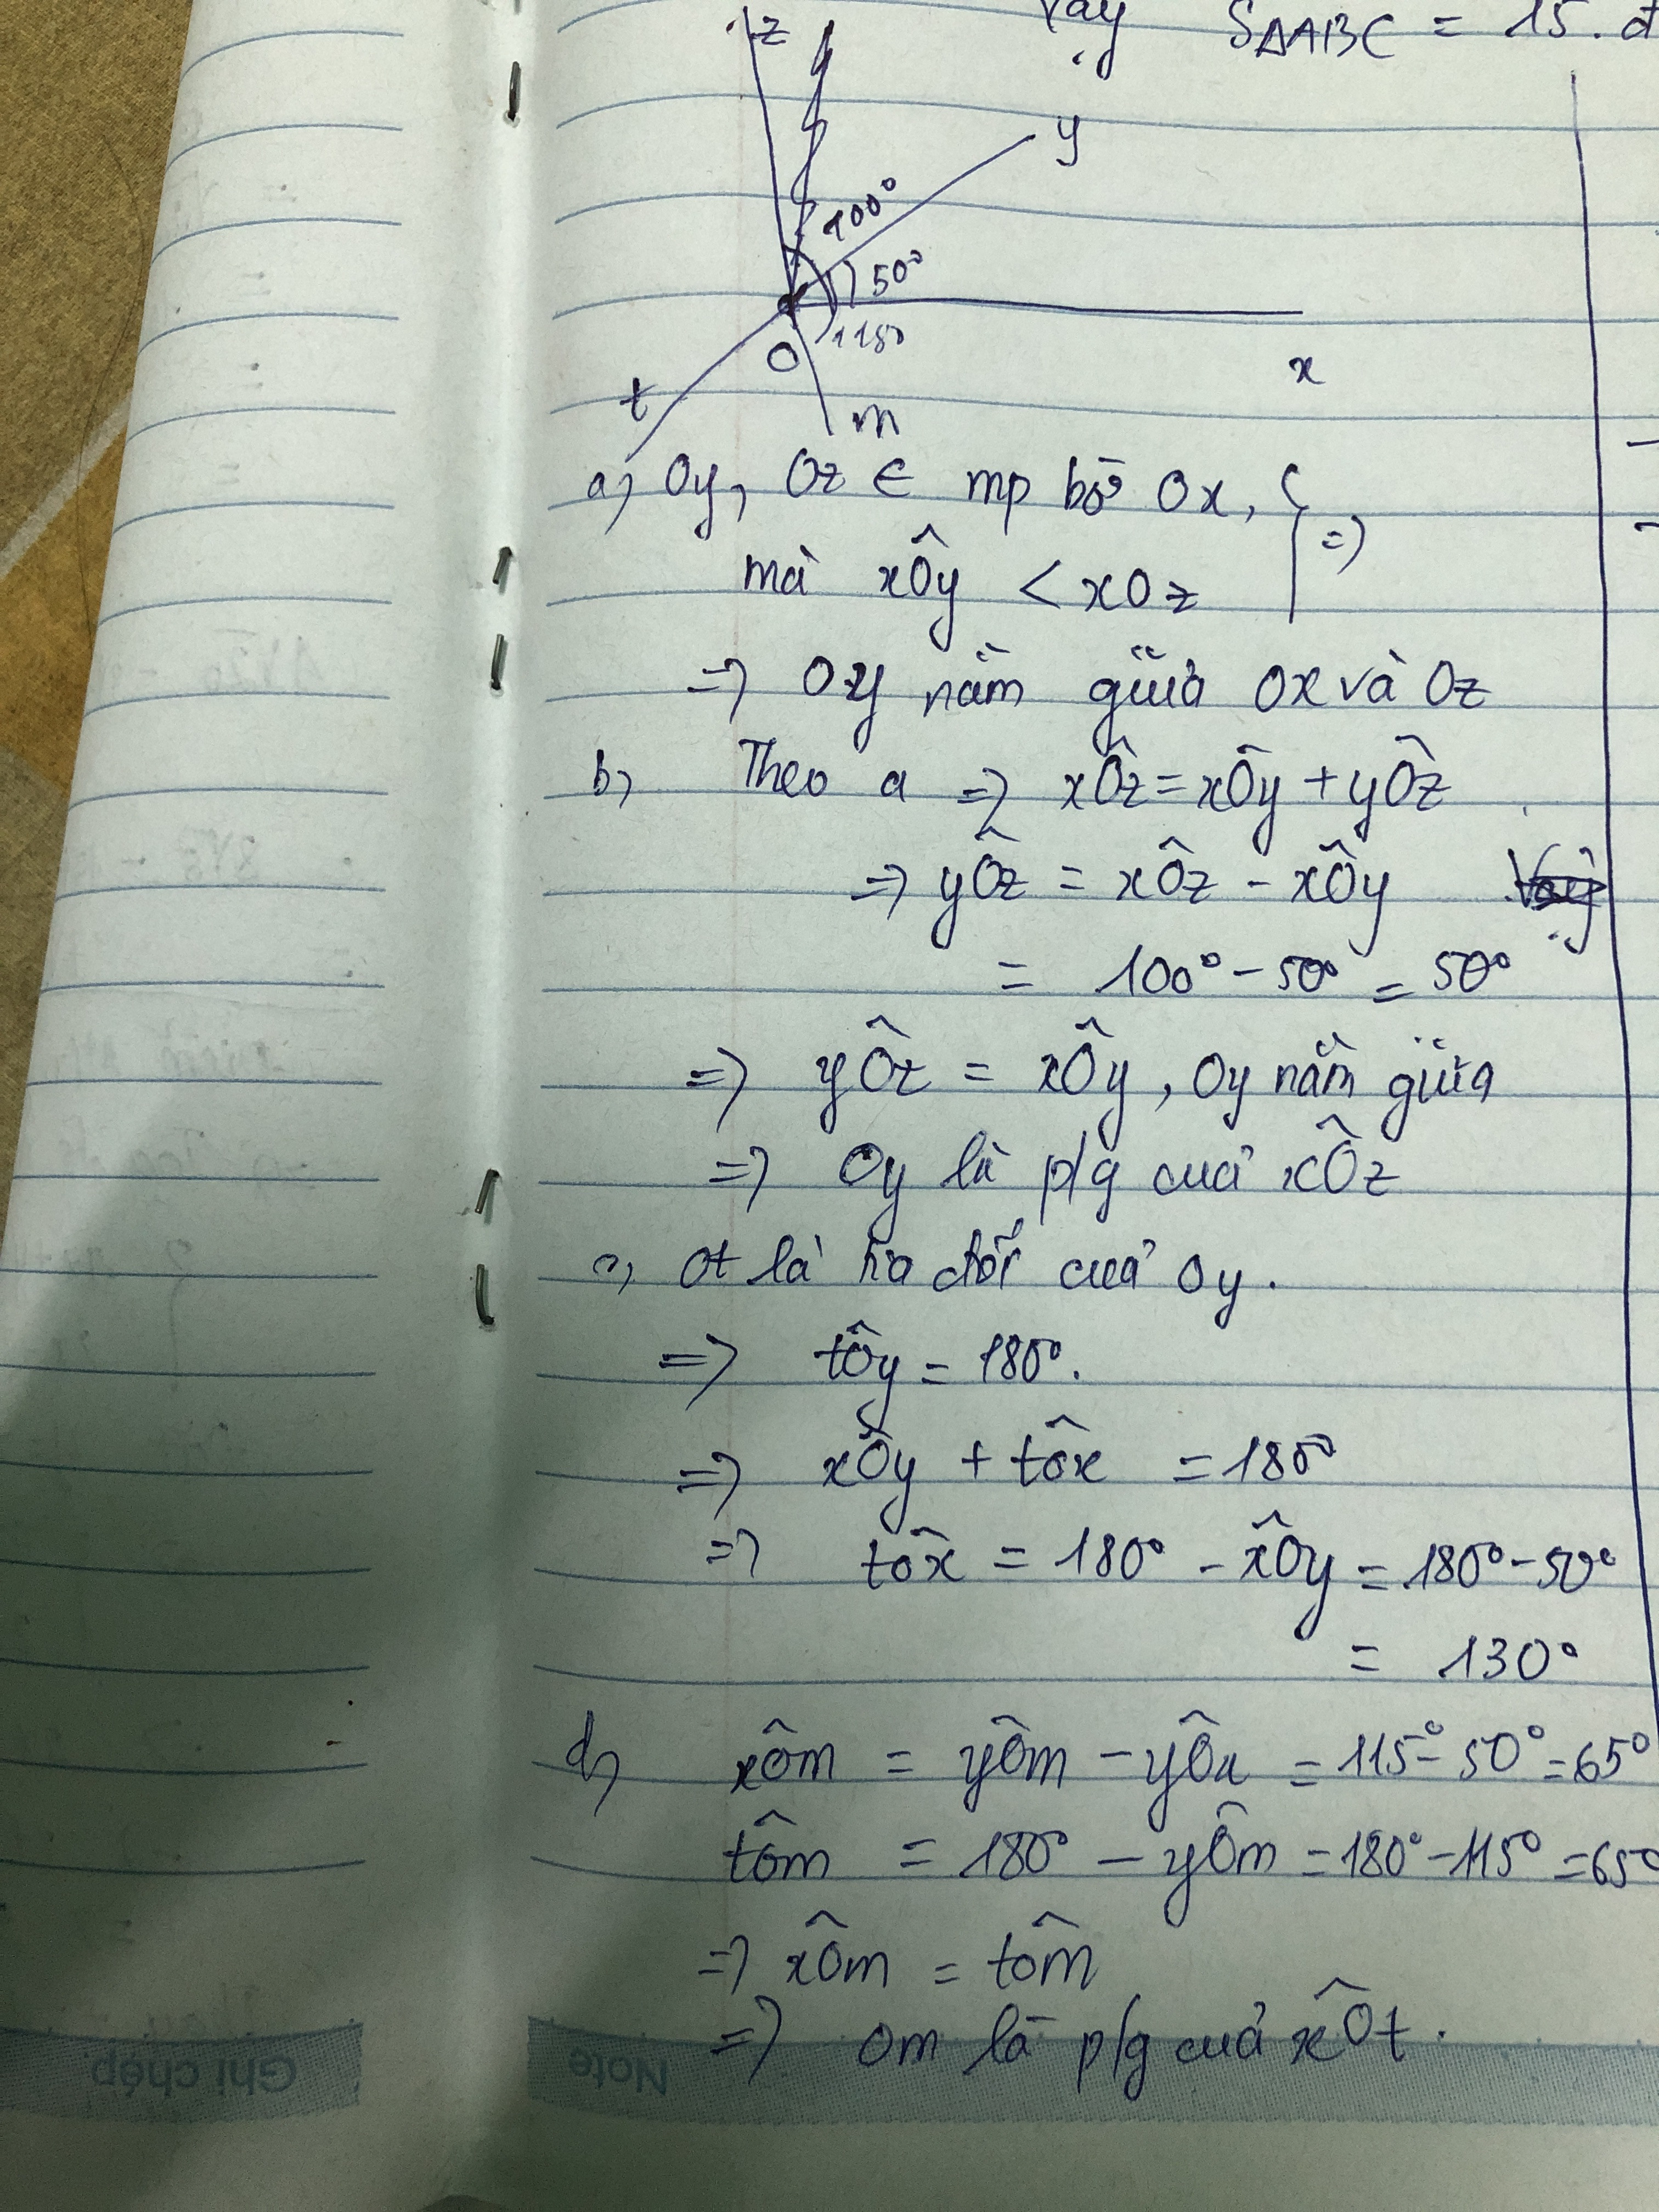 Vậy S△ABC = 15. đ
z
y
100°
50°
115°
O
x
t
m
a) Oy, Oz ∈ mp bờ Ox,
=>
mà xÔy < xOz
=> Oy nằm giữa Ox và Oz
b) Theo a => xÔz = xÔy + yÔz
=> yÔz = xÔz - xÔy
= 100° - 50° = 50°
=> yÔz = xÔy, Oy nằm giữa
=> Oy là p/g của xÔz
c) Ot là tia đối của Oy.
=> tÔy = 180°.
=> xÔy + tÔx = 180°
=> tÔx = 180° - xÔy = 180° - 50°
= 130°
d) xÔm = yÔm - yÔx = 115° - 50° = 65°
tÔm = 180° - yÔm = 180° - 115° = 65°
=> xÔm = tÔm
=> Om là p/g của xÔt.
Ghi chép
Note